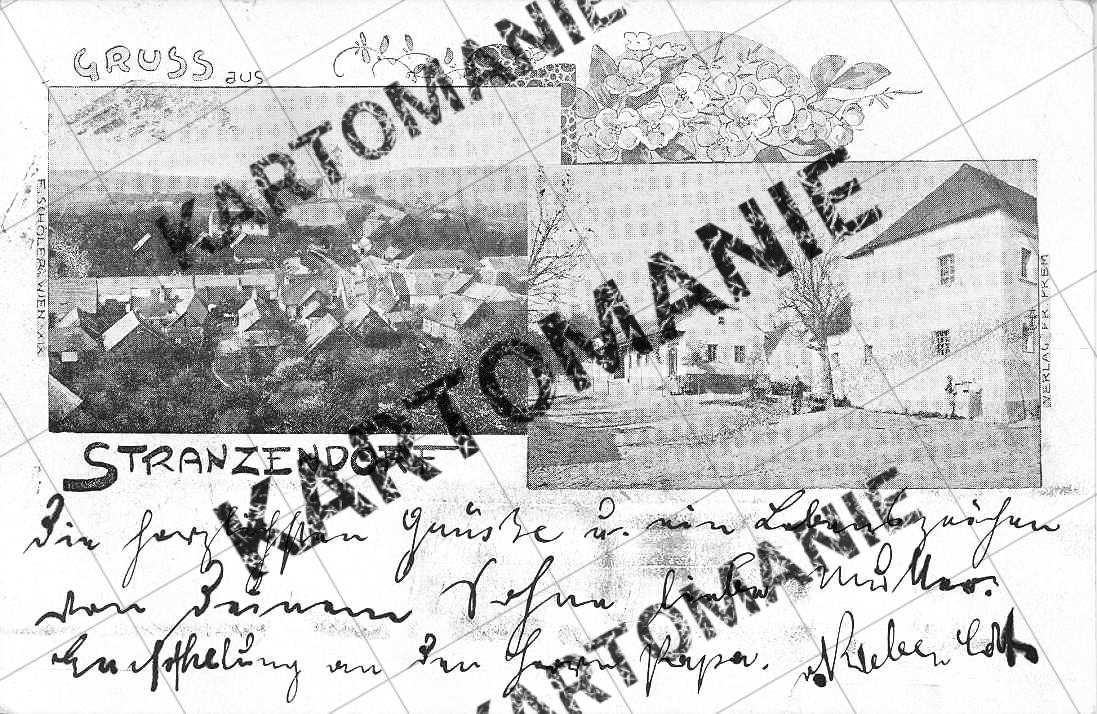 GRUSS aus
F. SCHÖLER · WIEN · XIX
VERLAG FR. PREM
STRANZENDORF
KARTOMANIE
KARTOMANIE
KARTOMANIE
Die herzlichsten Grüsse u. ein Lebenszeichen
von Deinem Sohne lieber Mutter.
an den Herrn Papa.